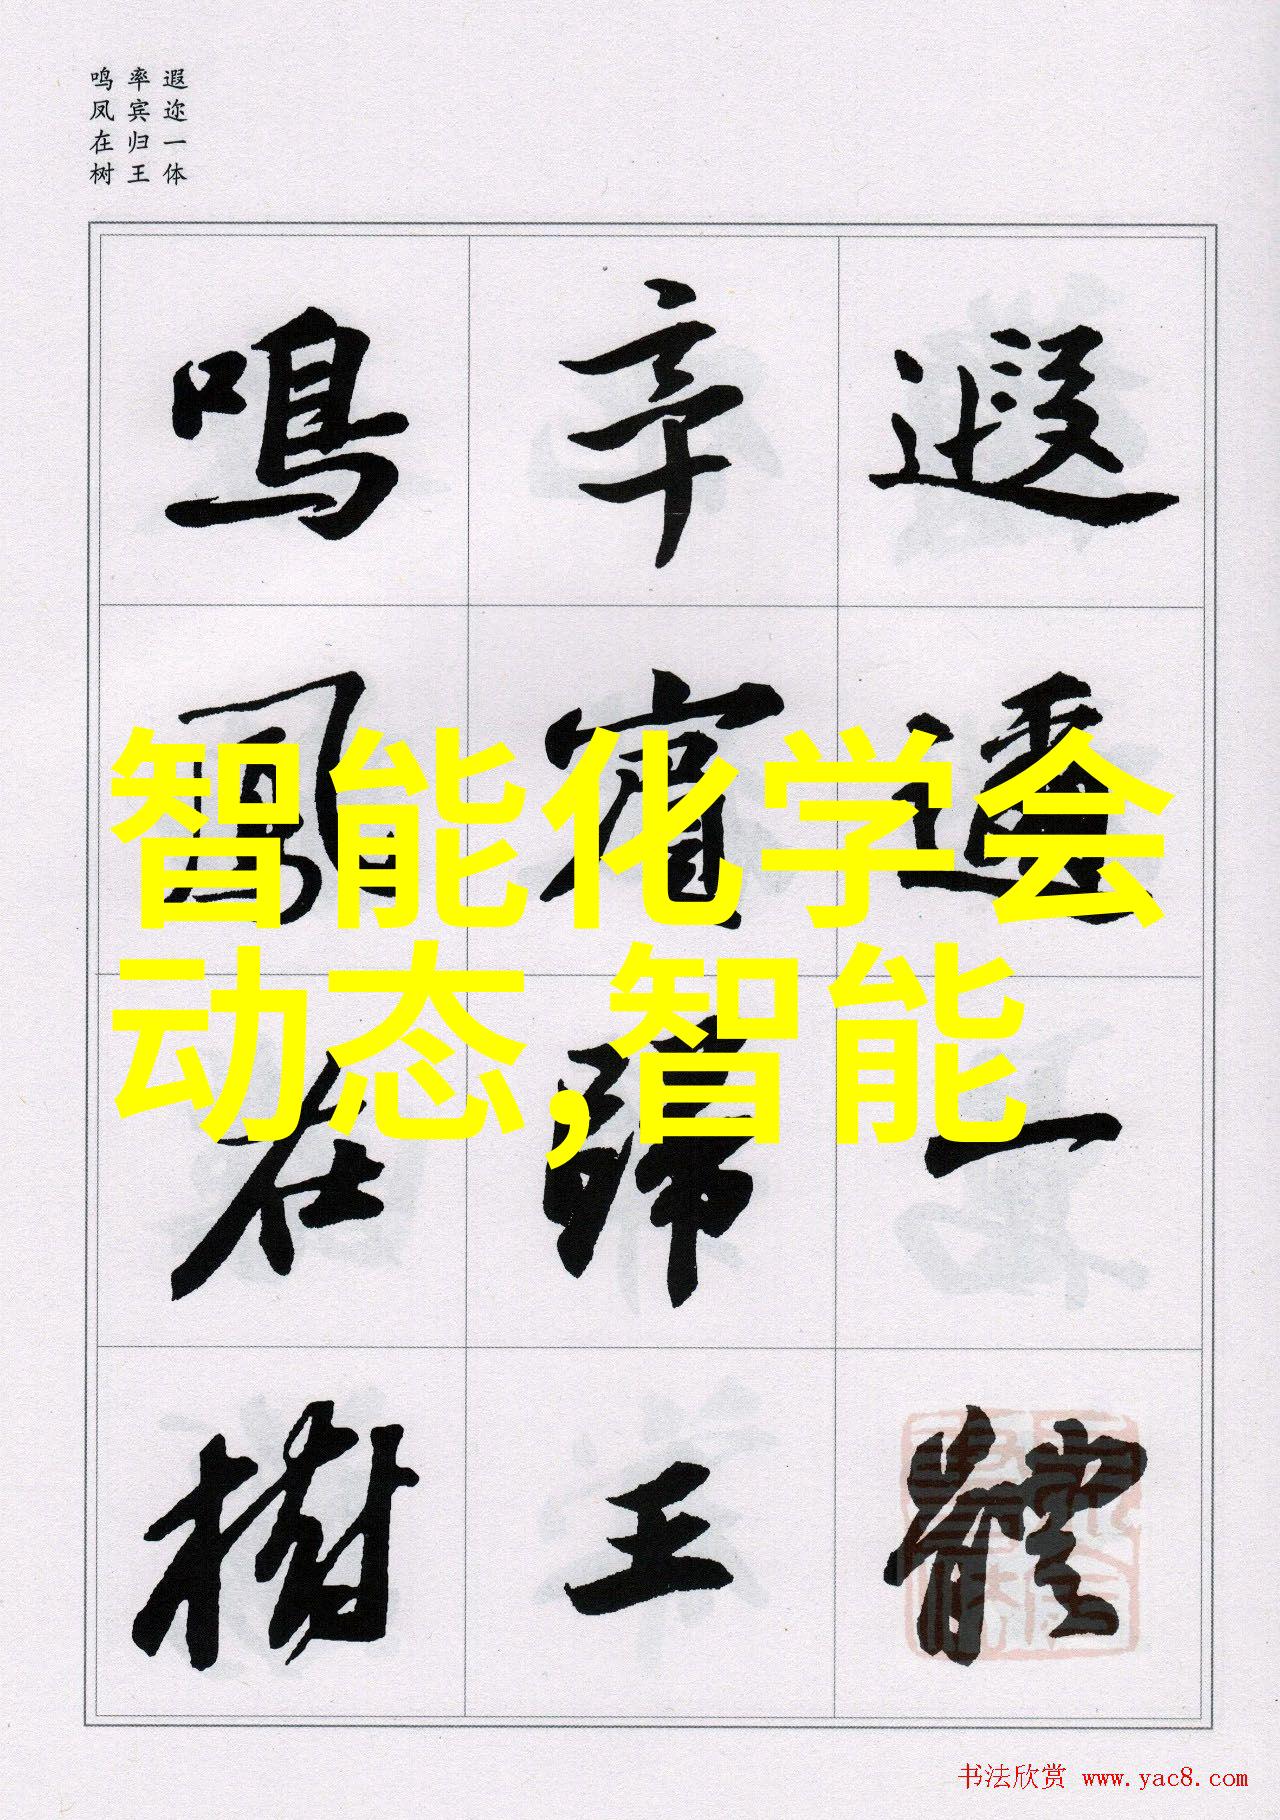 遐迩一体
率宾归王
鸣凤在树
遐迩一體
率賓歸王
鳴鳳在樹
智能化学会
动态,智能
书法欣赏 www.yac8.com